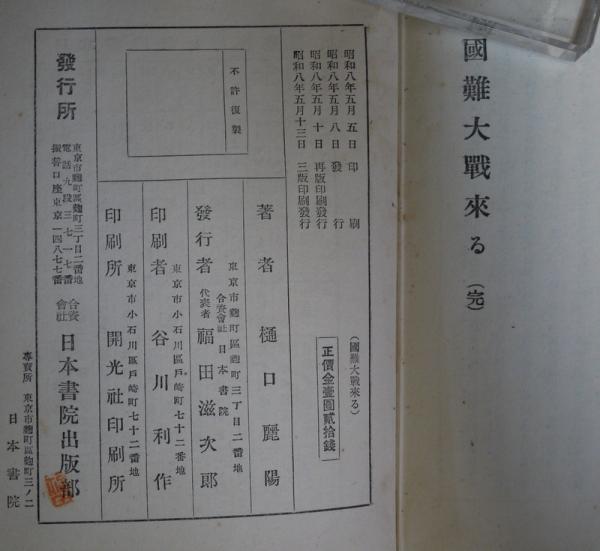 國難大戰來る（完）
（國難大戰來る）
正價金壹圓貳拾錢
昭和八年五月五日印刷
昭和八年五月八日發行
昭和八年五月十日再版印刷發行
昭和八年五月十三日三版印刷發行
不許復製
著者 樋口麗陽
東京市麴町區麴町三丁目二番地
合資會社日本書院
發行者 代表者 福田滋次郎
東京市小石川區戶崎町七十二番地
印刷者 谷川利作
東京市小石川區戶崎町七十二番地
印刷所 開光社印刷所
發行所
東京市麴町區麴町三丁目二番地
電話九段三七一七番
振替口座東京一四八七七番
合資會社 日本書院出版部
專賣所 東京市麴町區麴町三ノ二
日本書院